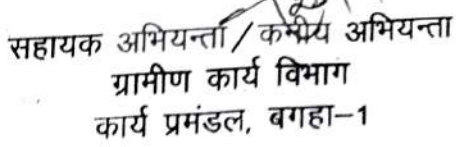 सहायक अभियन्ता / कनीय अभियन्ता
ग्रामीण कार्य विभाग
कार्य प्रमंडल, बगहा-1